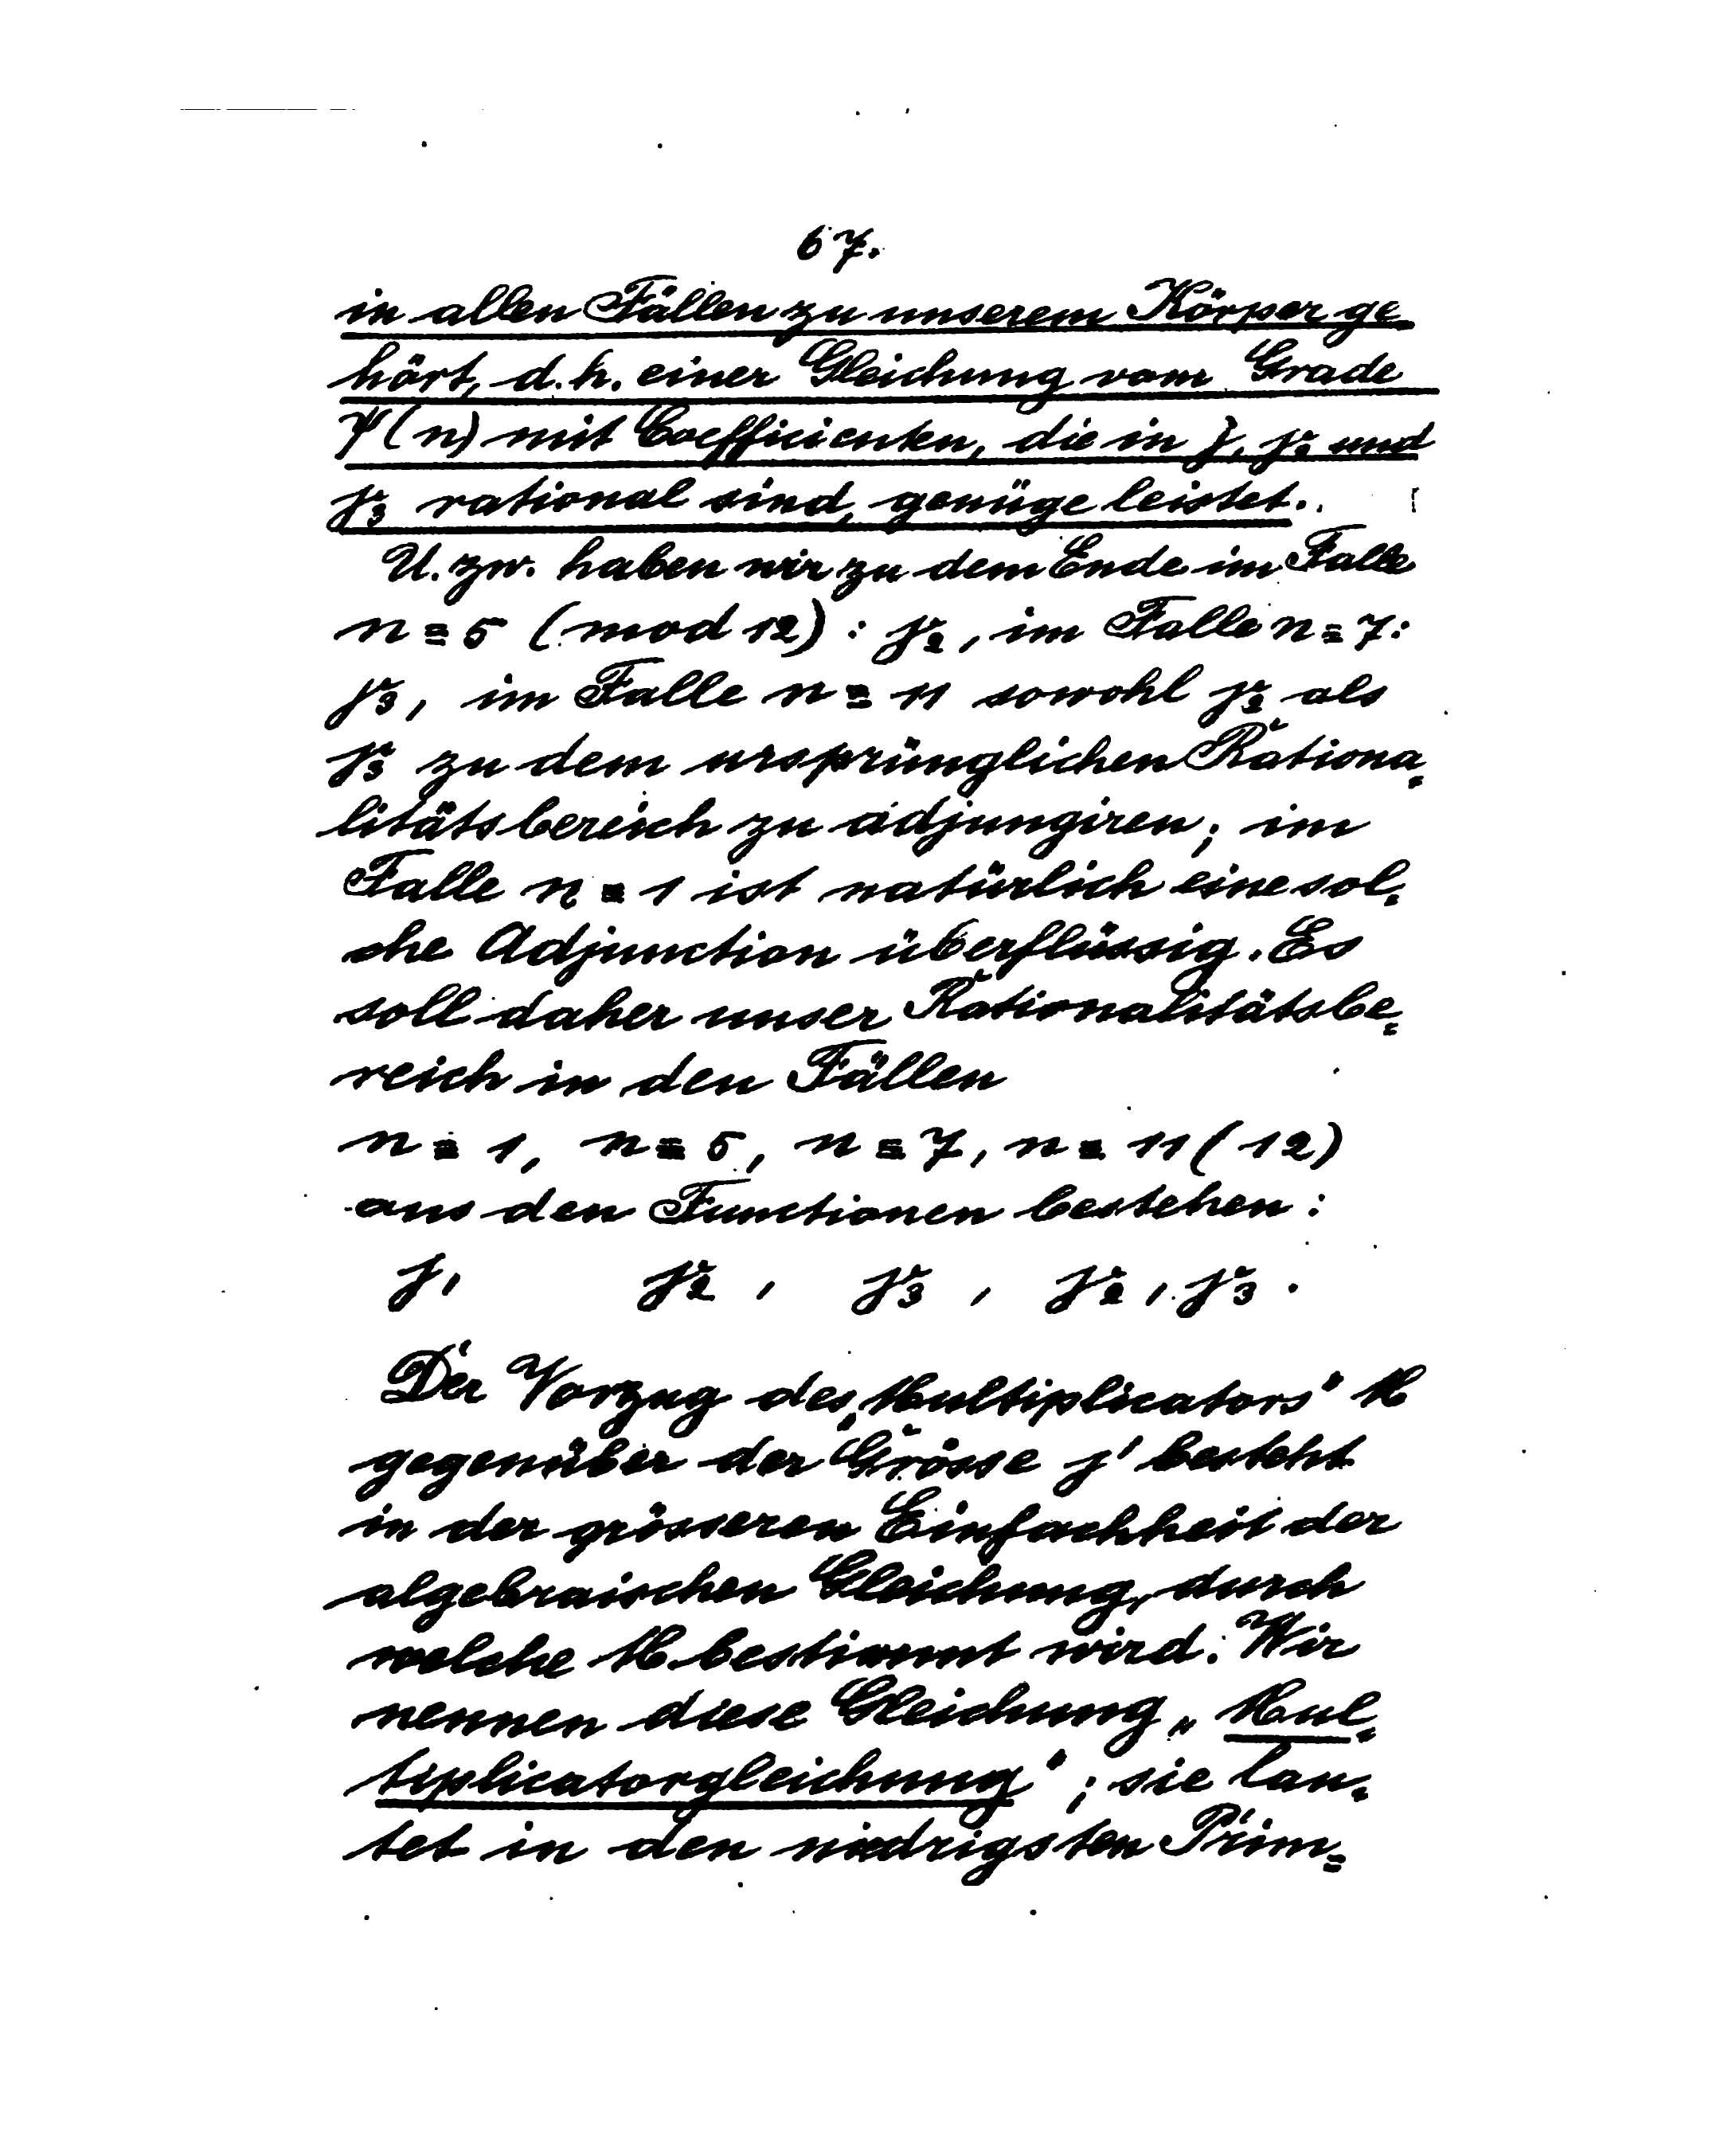 67.
in allen Fällen zu unserem Körper ge
hört, d.h. einer Gleichung vom Grade
ψ(n) mit Coefficienten, die in j, γ₂ und
γ₃ rational sind, genüge leistet.
U. zw. haben wir zu dem Ende im Falle
n ≡ 5 (mod 12) : γ₂, im Falle n ≡ 7:
γ₃, im Falle n ≡ 11 sowohl γ₂ als
γ₃ zu dem ursprünglichen Rationa=
litätsbereich zu adjungiren; im
Falle n ≡ 1 ist natürlich eine sol=
che Adjunction überflüssig. Es
soll daher unser Rationalitätsbe=
reich in den Fällen
n ≡ 1, n ≡ 5, n ≡ 7, n ≡ 11 (12)
aus den Functionen bestehen:
j, γ₂, γ₃, γ₂, γ₃.
Der Vorzug des „Multiplicators" M
gegenüber der Grösse j' besteht
in der grösseren Einfachheit der
algebraischen Gleichung, durch
welche M bestimmt wird. Wir
nennen diese Gleichung „Mul=
tiplicatorgleichung"; sie lau=
tet in den niedrigsten Prim=